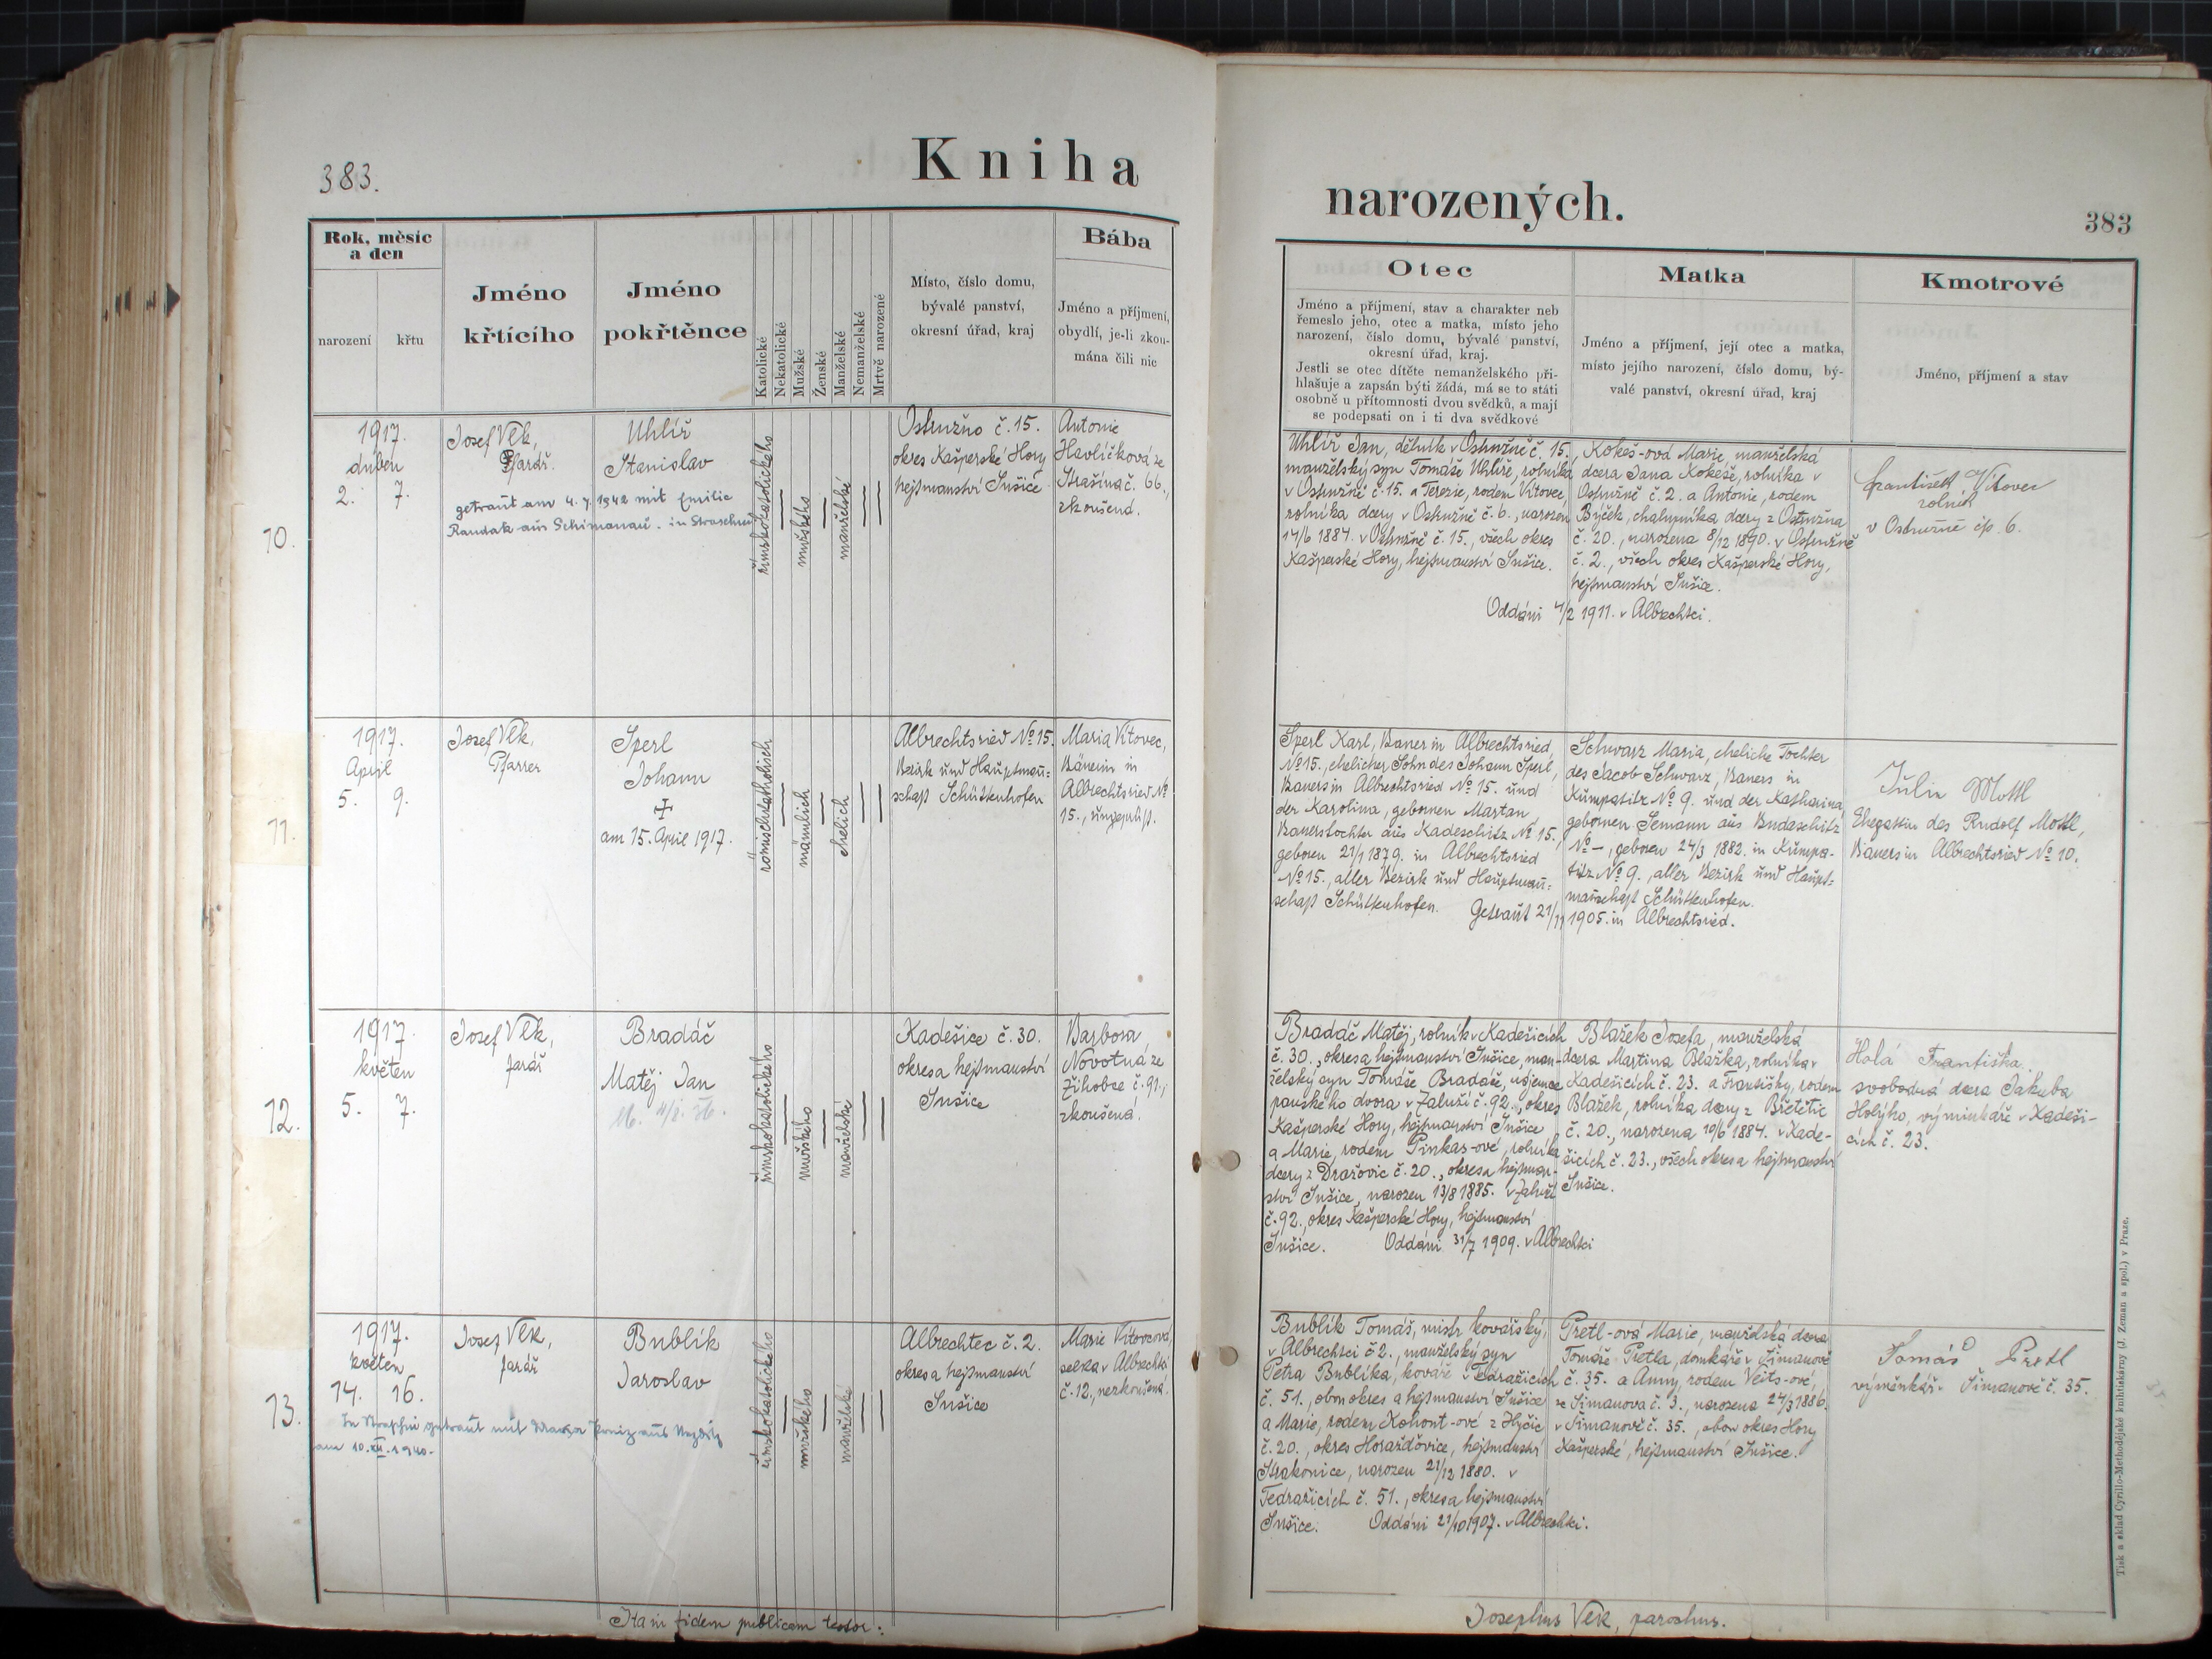 383.
Kniha
Rok, měsíc
a den
narození
křtu
Jméno
křtícího
Jméno
pokřtěnce
Katolické
Nekatolické
Mužské
Ženské
Manželské
Nemanželské
Mrtvě narozené
Místo, číslo domu,
bývalé panství,
okresní úřad, kraj
Bába
Jméno a příjmení,
obydlí, je-li zkou-
mána čili nic
10.
1917.
duben
2. 7.
Josef Vlk,
farář.
getraut am 4. 7. 1942 mit Emilie
Randak aus Schimanau. in Straschin
Uhlíř
Stanislav
římskokatolického
mužského
manželské
Ostružno č. 15.
okres Kašperské Hory
hejtmanství Sušice
Antonie
Havlíčková ze
Strašína č. 66.,
zkoušená.
11.
1917.
April
5. 9.
Josef Vlk,
Pfarrer
Sperl
Johann
✝
am 15. April 1917.
römischkatholisch
männlich
ehelich
Albrechtsried No 15.
Bezirk und Hauptman̄=
schaft Schüttenhofen
Maria Vítovec,
Bäuerin in
Albrechtsried No
15., ungeprüft.
12.
1917.
květen
5. 7.
Josef Vlk,
farář
Bradáč
Matěj Jan
římskokatolického
mužského
manželské
Kadešice č. 30.
okres a hejtmanství
Sušice
Barbora
Novotná ze
Žihobce č. 91.,
zkoušená.
13.
1917.
květen
14. 16.
Josef Vlk,
farář
Bublík
Jaroslav
am 10. XII. 1940.
římskokatolického
mužského
manželské
Albrechtec č. 2.
okres a hejtmanství
Sušice
Marie Vítovcová,
selka v Albrechtci
č. 12, nezkoušená.
Ita in fidem publicam testor:
narozených.
383
Otec
Jméno a příjmení, stav a charakter neb
řemeslo jeho, otec a matka, místo jeho
narození, číslo domu, bývalé panství,
okresní úřad, kraj.
Jestli se otec dítěte nemanželského při-
hlašuje a zapsán býti žádá, má se to státi
osobně u přítomnosti dvou svědků, a mají
se podepsati on i ti dva svědkové
Matka
Jméno a příjmení, její otec a matka,
místo jejího narození, číslo domu, bý-
valé panství, okresní úřad, kraj
Kmotrové
Jméno, příjmení a stav
Uhlíř Jan, dělník v Ostružně č. 15.,
manželský syn Tomáše Uhlíře, rolníka
v Ostružně č. 15. a Terezie, rodem Vítovec,
rolníka dcery v Ostružně č. 6., narozen
14/6 1884. v Ostružně č. 15., všech okres
Kašperské Hory, hejtmanství Sušice.
Kokeš-ová Marie, manželská
dcera Jana Kokeše, rolníka v
Ostružně č. 2. a Antonie, rodem
Býček, chalupníka dcery z Ostružna
č. 20., narozena 8/12 1890. v Ostružně
č. 2., všech okres Kašperské Hory,
hejtmanství Sušice.
Oddáni 4/2 1911. v Albrechtci.
František Vítovec
rolník
v Ostružně čp. 6.
Sperl Karl, Bauer in Albrechtsried
No 15., ehelicher Sohn des Johann Sperl,
Bauers in Albrechtsried No 15. und
der Karolina, gebornen Martan,
Bauerstochter aus Kadeschitz No 15.,
geboren 21/1 1879. in Albrechtsried
No 15., aller Bezirk und Hauptman̄=
schaft Schüttenhofen.
Schwarz Maria, eheliche Tochter
des Jacob Schwarz, Bauers in
Kumpatitz No 9. und der Katharina,
gebornen Semann aus Budaschitz
No —, geboren 24/3 1882. in Kumpa-
titz No 9., aller Bezirk und Haupt=
manschaft Schüttenhofen.
Getraut 21/11 1905. in Albrechtsried.
Julie Mottl
Ehegattin des Rudolf Mottl,
Bauers in Albrechtsried No 10.
Bradáč Matěj, rolník v Kadešicích
č. 30., okres a hejtmanství Sušice, man-
želský syn Tomáše Bradáče, nájemce
panského dvora v Zaluží č. 92., okres
Kašperské Hory, hejtmanství Sušice
a Marie, rodem Pinkas-ové, rolníka
dcery z Dražovic č. 20., okres a hejtman-
ství Sušice, narozen 13/8 1885. v Zaluží
č. 92., okres Kašperské Hory, hejtmanství
Sušice. Oddáni 31/7 1909. v Albrechtci
Blažek Josefa, manželská
dcera Martina Blažka, rolníka v
Kadešicích č. 23. a Františky, rodem
Blažek, rolníka dcery z Břetětic
č. 20., narozena 10/6 1884. v Kade-
šicích č. 23., všech okres a hejtmanství
Sušice.
Holá Františka
svobodná dcera Jakuba
Holýho, výminkáře v Kadeši-
cích č. 23.
Bublík Tomáš, mistr kovářský,
v Albrechtci č 2., manželský syn
Petra Bublíka, kováře v Tedražicích
č. 51., obou okres a hejtmanství Sušice
a Marie, rodem Kohout-ové z Hyčic
č. 20., okres Horažďovice, hejtmanství
Strakonice, narozen 21/12 1880. v
Tedražicích č. 51., okres a hejtmanství
Sušice. Oddáni 21/10 1907. v Albrechtci.
Pretl-ová Marie, manželská dcera
Tomáše Pretla, domkáře v Šimanově
č. 35. a Anny, rodem Veits-ové,
ze Šimanova č. 3., narozena 27/3 1886.
v Šimanově č. 35., obou okres Hory
Kašperské, hejtmanství Sušice.
Tomáš Pretl
výměnkář. Šimanově č. 35.
Josephus Vlk, parochus.
Tisk a sklad Cyrillo-Methodějské knihtiskárny (J. Zeman a spol.) v Praze.